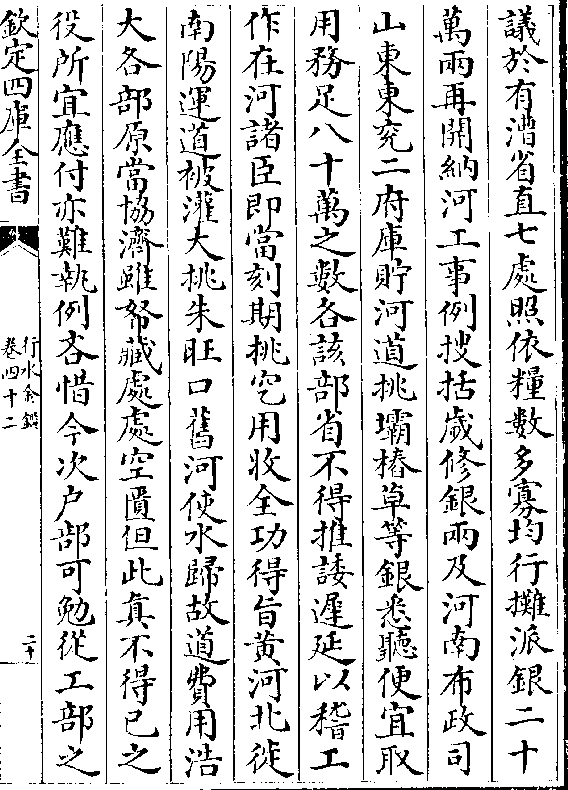 議於有漕省直七處照依糧數多寡均行攤派銀二十
萬兩再開納河工事例搜括歲修銀兩及河南布政司
山東東兖二府庫貯河道挑壩樁草等銀悉聽便宜取
用務足八十萬之數各該部省不得推諉遲延以稽工
作在河諸臣即當刻期挑穵用收全功得旨黄河北徙
南陽運道被灌大挑朱旺口舊河使水歸故道費用浩
大各部原當協濟雖帑藏處處空匱但此真不得已之
役所宜應付亦難執例吝惜今次户部可勉從工部之
欽定四庫全書
行水金鑑
卷四十二
二十